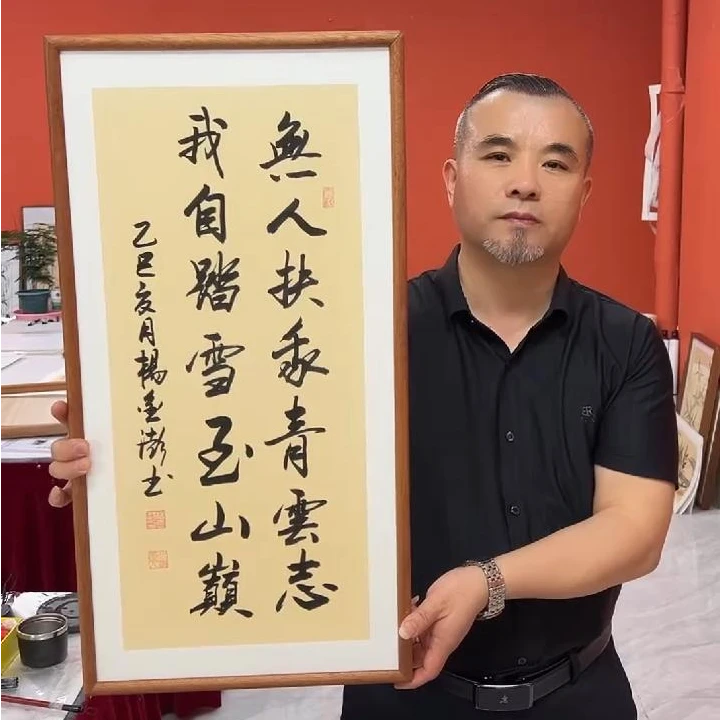 無人扶我青雲志
我自踏雪至山巔
乙巳亥月楊金澎书